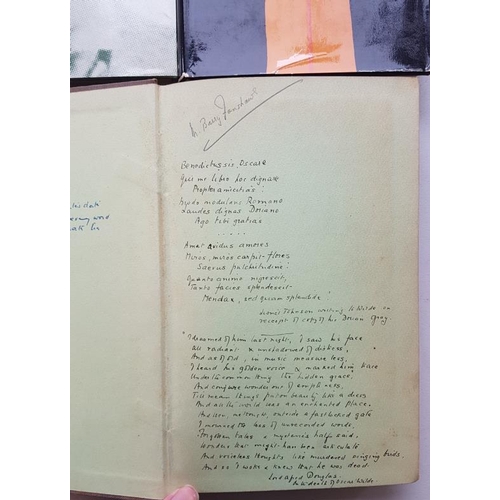 Barry
Benedictus sis, Oscare
Qui me libro hoc dignare
Propter amicitias:
Modo modulans Romano
Laudes dignas Doriano
Ago tibi gratias
. . . . .
Amat avidus amores
Miros, miros carpit flores
Saevus pulchritudine:
Quanto anima nigrescit,
Tanto facies splendescit
Mendax, sed quam splendide!
Lionel Johnson writing to Wilde on
receipt of copy of his Dorian Gray.
I dreamed of him last night, I saw his face
All radiant & unshadowed of distress,
And as of old, in music measureless,
I heard his golden voice & marked him trace
Under the common thing the hidden grace,
And conjure wonder out of emptiness,
Till mean things put on beauty like a dress
And all the world was an enchanted place.
And then methought outside a fast locked gate
I mourned the loss of unrecorded words,
Forgotten tales & mysteries half said,
Wonders that might have been articulate
And voiceless thoughts like murdered singing birds.
And so I woke & knew that he was dead.
Lord Alfred Douglas